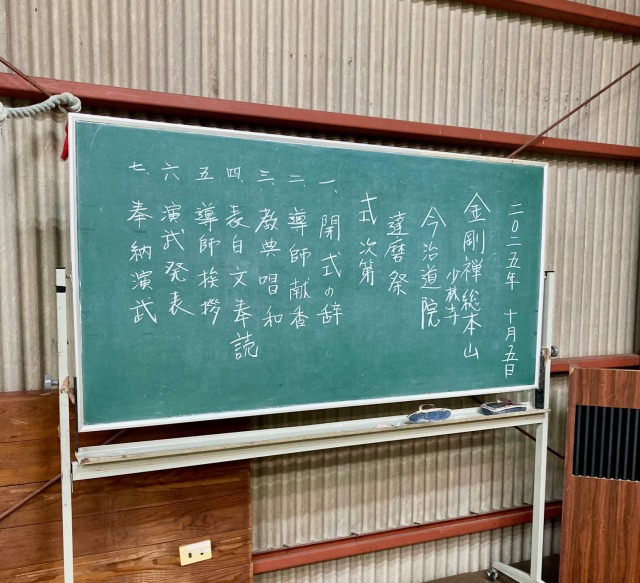 二〇二五年 十月五日
金剛禅総本山
少林寺
今治道院
達磨祭
式次第
一、開式の辞
二、導師献香
三、教典唱和
四、表白文奉読
五、導師挨拶
六、演武発表
七、奉納演武